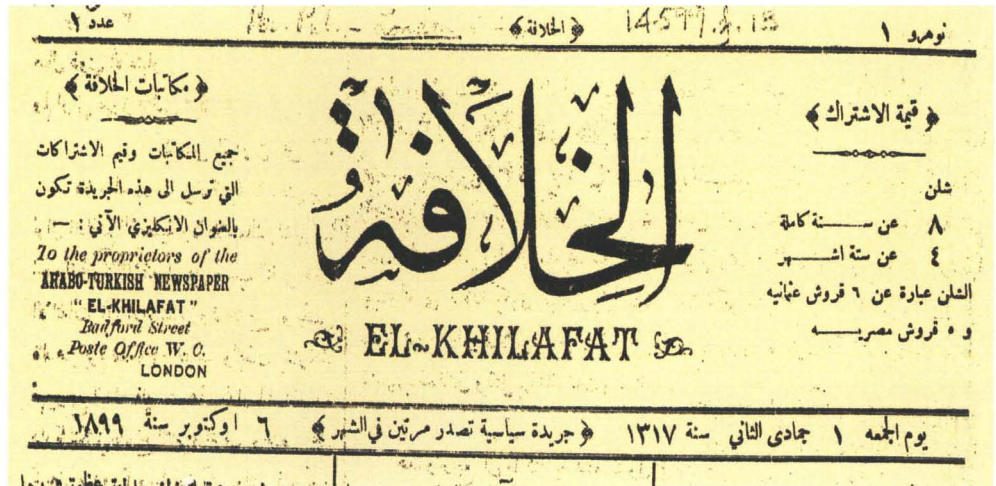 نومرو ١
﴿ الخلافة ﴾
14599.f.13
عدد ١
﴿ قيمة الاشتراك ﴾
شلن
٨ عن سنة كاملة
٤ عن ستة اشهر
الشلن عبارة عن ٦ قروش عثمانيه
و ٥ قروش مصريه
الخلافة
EL-KHILAFAT
﴿ مكاتبات الخلافة ﴾
جميع المكاتبات وقيم الاشتراكات
التي ترسل الى هذه الجريدة تكون
بالعنوان الانكليزي الآتي : —
To the proprietors of the
ARABO-TURKISH NEWSPAPER
" EL-KHILAFAT "
Badford Street
Poste Office W. C.
LONDON
يوم الجمعه ١ جمادى الثاني سنة ١٣١٧ ﴿ جريدة سياسية تصدر مرتين في الشهر ﴾ ٦ اوكتوبر سنة ١٨٩٩